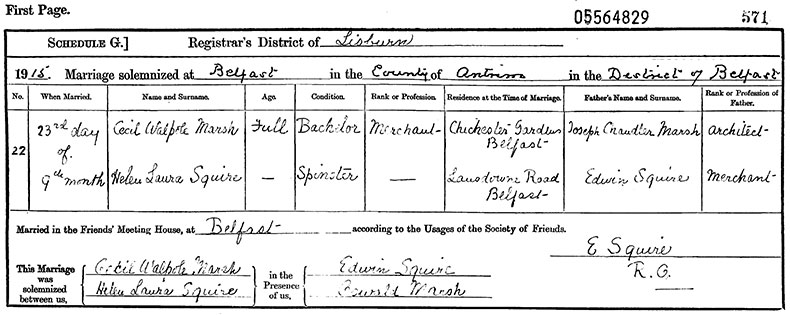 First Page.
05564829
571
SCHEDULE G.] Registrar's District of Lisburn
1915. Marriage solemnized at Belfast in the County of Antrim in the District of Belfast
No. When Married. Name and Surname. Age. Condition. Rank or Profession. Residence at the Time of Marriage. Father's Name and Surname. Rank or Profession of Father.
22 23rd day of 9th month
Cecil Walpole Marsh Full Bachelor Merchant Chichester Gardens Belfast Joseph Chandler Marsh Architect
Helen Laura Squire — Spinster — Lansdowne Road Belfast Edwin Squire Merchant
Married in the Friends' Meeting House, at Belfast according to the Usages of the Society of Friends.
E Squire
R.O.
This Marriage was solemnized between us, Cecil Walpole Marsh
Helen Laura Squire
in the Presence of us, Edwin Squire
Oswald Marsh